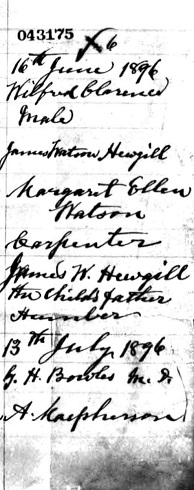 043175
16th June 1896
Wilfred Clarence
Male
James Watson Hewgill
Margaret Ellen
Watson
Carpenter
James W. Hewgill
the Child's father
Humber
13th July 1896
G. H. Bowles M.D.
A. Macpherson